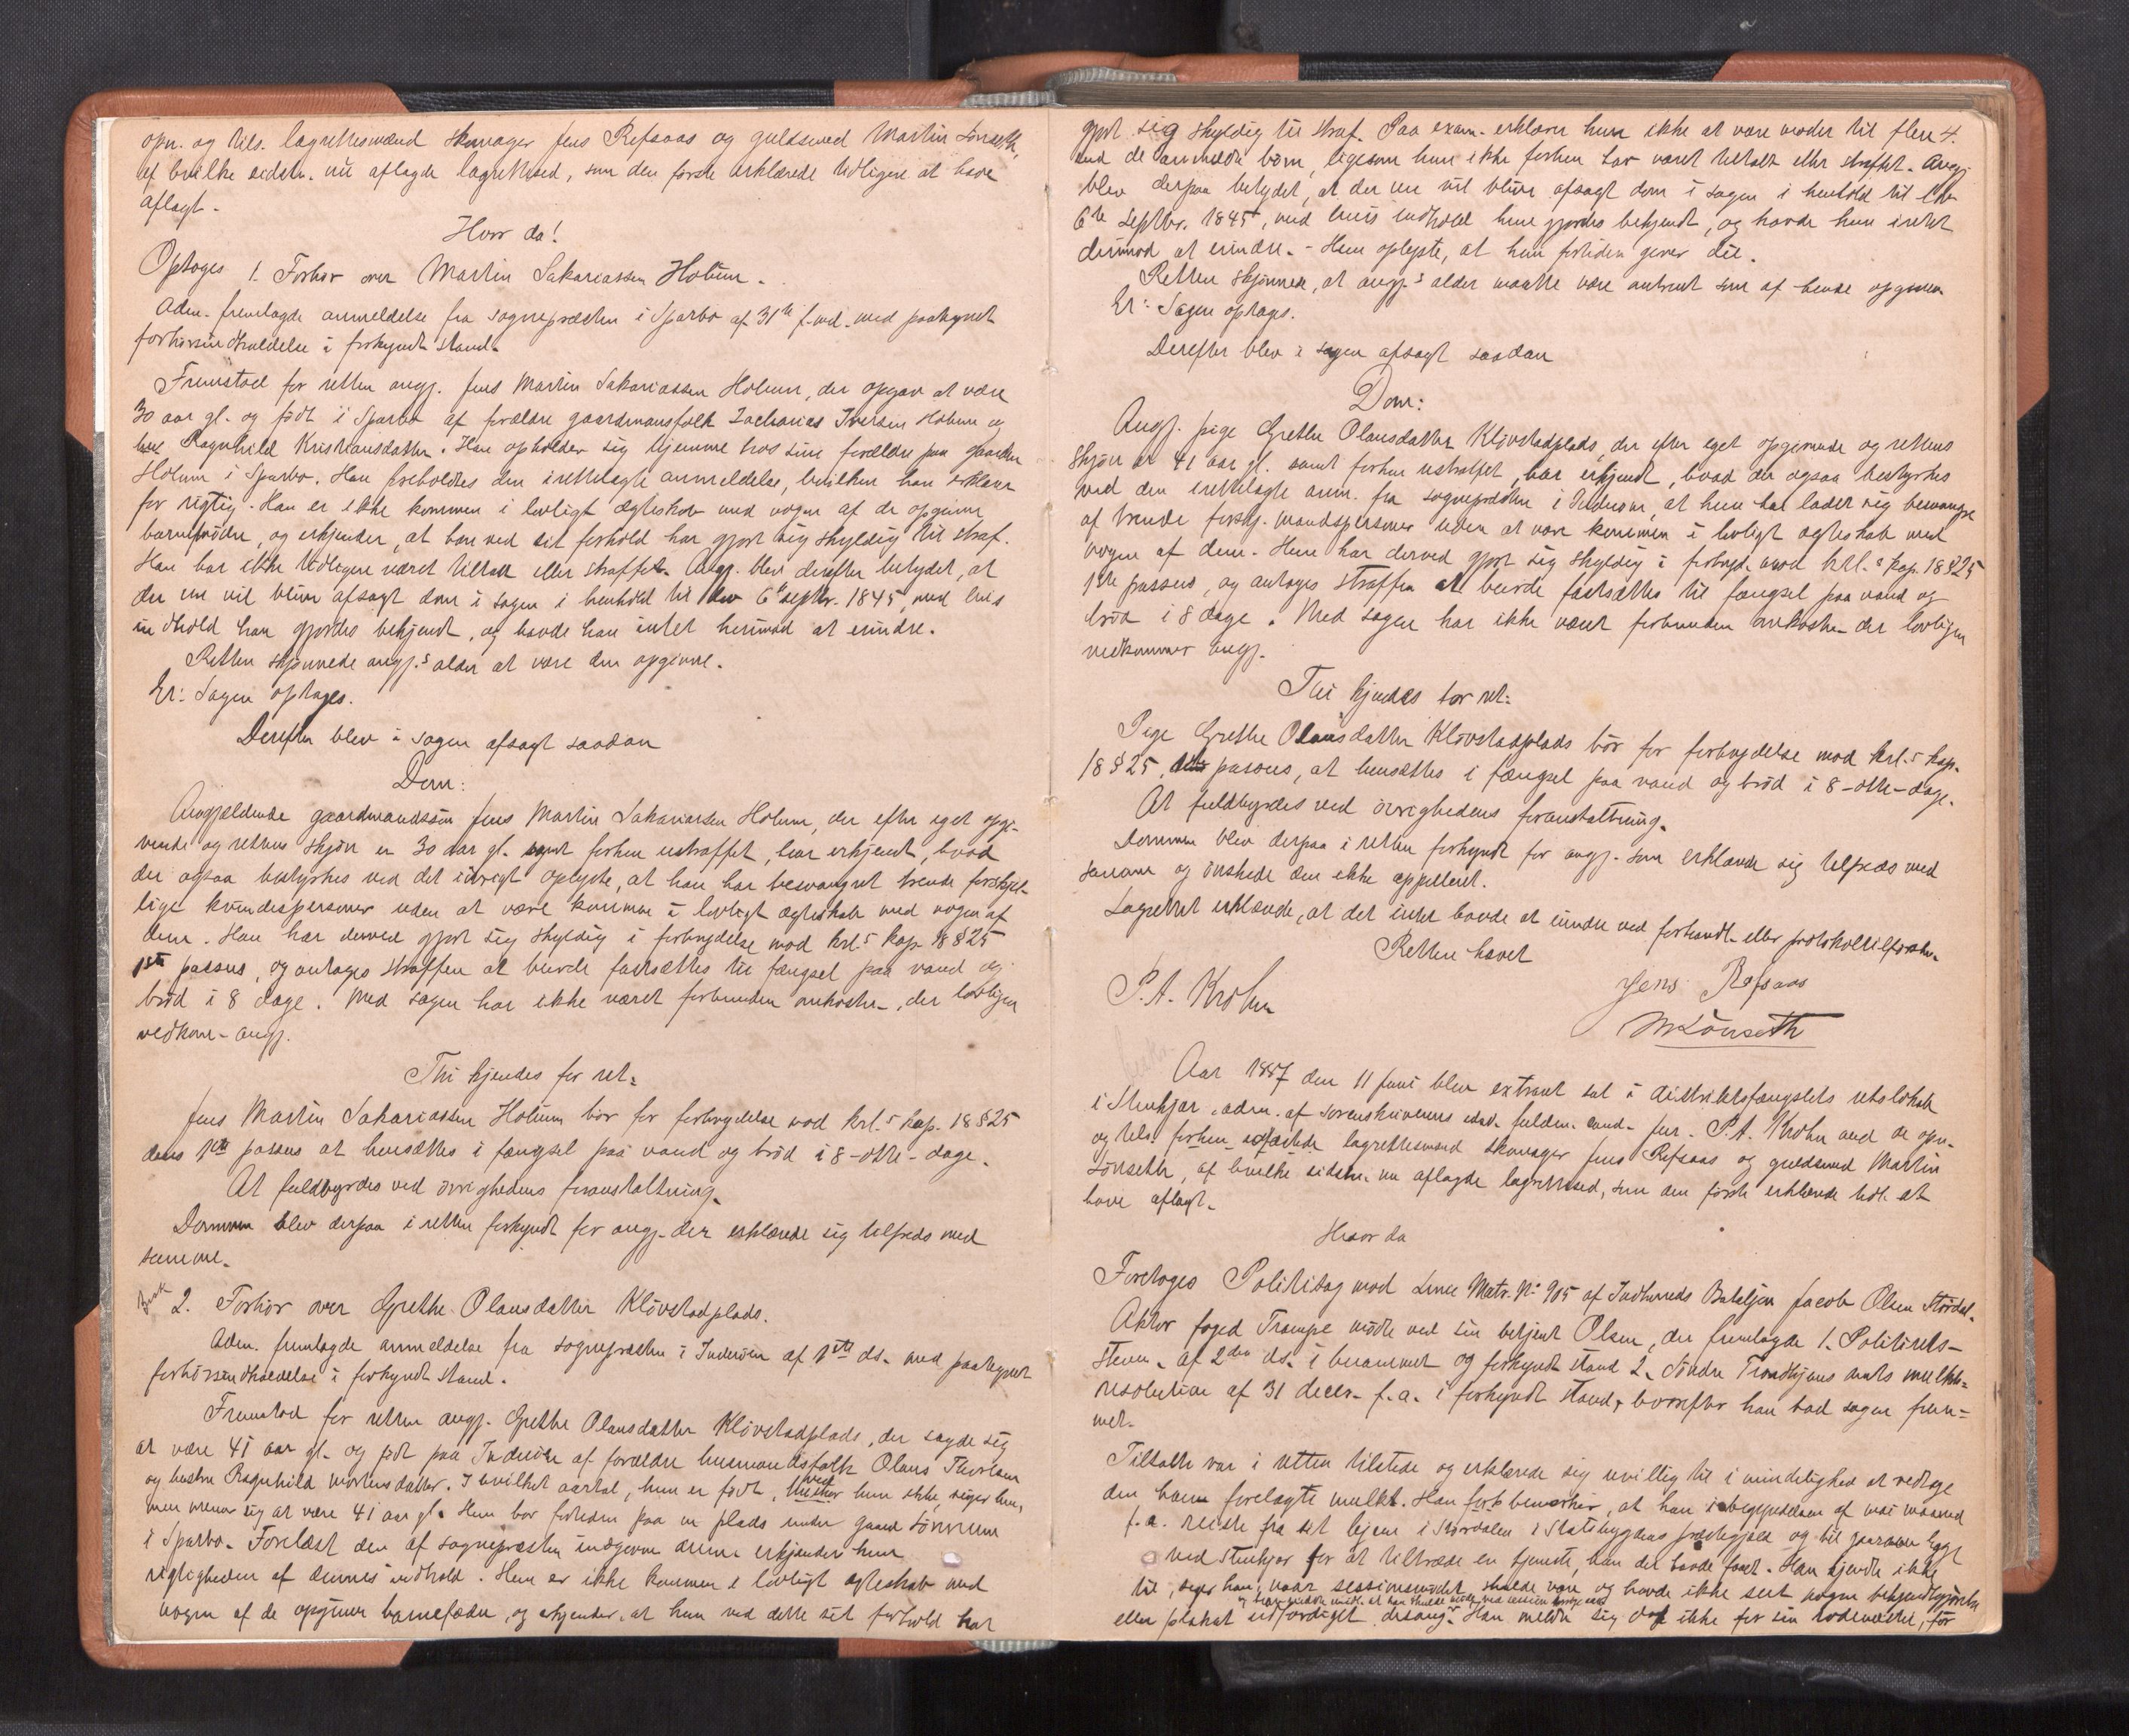 opn. og tils. lagrettesmænd skomager Jens Refsaas og guldsmed Martin Lönseth,
af hvilke sidstn. nu aflagde lagrettesed, som den første erklærede tidligere at have
aflagt.
Hvor da!
Optoges 1. Forhør over Martin Sakariassen Holum.
Adm. fremlagde anmeldelse fra sognepræsten i Sparbo af 31te f. md. med paategnet
forhørsindkaldelse i forkyndt stand.
Fremstod for retten angj. Jens Martin Sakariassen Holum, der opgav at være
30 aar gl. og født i Sparbo af forældre gaardmansfolk Zacharias Iversen Holum og
Ragnhild Kristiansdatter. Han opholder sig hjemme hos sine forældre paa gaarden
Holum i Sparbo. Han foreholdtes den irettelagte anmeldelse, hvilken han erklærer
for rigtig. Han er ikke kommen i lovligt ægteskab med nogen af de opgivne
barnemödre, og erkjender, at han ved sit forhold har gjort sig skyldig til straf.
Han har ikke tidligere været tiltalt eller straffet. Angj. blev derefter betydet, at
der nu vil blive afsagt dom i sagen i henhold til lov 6te septbr. 1845, med hvis
indhold han gjordes bekjendt, og havde han intet herimod at erindre.
Retten skjønnede angj.s alder at være den opgivne.
Er: Sagen optages.
Derefter blev i sagen afsagt saadan
Dom:
Angjældende gaardmandssøn Jens Martin Sakariassen Holum, der efter eget opgi-
vende og rettens skjøn er 30 aar gl. samt forhen ustraffet, har erkjendt, hvad
der ogsaa bestyrkes ved det iøvrigt oplyste, at han har besvangret trende forskjel-
lige kvindespersoner uden at være kommen i lovligt ægteskab med nogen af
dem. Han har derved gjort sig skyldig i forbrydelse mod krl.s kap. 18 § 25
1ste passus, og antages straffen at burde fastsættes til fængsel paa vand og
bröd i 8 dage. Med sagen har ikke været forbunden omkostn., der lovligen
vedkom. angj.
Thi kjendes for ret:
Jens Martin Sakariassen Holum bör for forbrydelse mod krl.s kap. 18 § 25
dens 1ste passus at hensættes i fængsel paa vand og bröd i 8-otte-dage.
At fuldbyrdes ved övrighedens foranstaltning.
Dommen blev derpaa i retten forkyndt for angj. der erklærede sig tilfreds med
samme.
2. Forhör over Grethe Olausdatter Klövstadplads.
Adm. fremlagde anmeldelse fra sognepræsten i Inderöen af 1ste ds. med paategnet
forhörsindkaldelse i forkyndt stand.
Fremstod for retten angj. Grethe Olausdatter Klövstadplads, der sagde sig
at være 41 aar gl. og født paa Inderöen af forældre husmandsfolk Olaus
og hustru Ragnhild Mortensdatter. I hvilket aarstal, hun er födt, ved hun ikke, siger hun,
men mener sig at være 41 aar gl. Hun bor fortiden paa en plads under gaard
i Sparbo. Forelæst den af sognepræsten indgivne anm. erkjender hun
rigtigheden af dennes indhold. Hun er ikke kommen i lovligt ægteskab med
nogen af de opgivne barnefædre, og erkjender, at hun ved dette sit forhold har
gjort sig skyldig til straf. Paa exam. erklærer hun ikke at være moder til flere 4.
end de anmeldte börn, ligesom hun ikke forhen har været tiltalt eller straffet. Angj.
blev derpaa betydet, at der nu vil blive afsagt dom i sagen i henhold til lov
6te septbr. 1845, med hvis indhold hun gjordes bekjendt, og havde hun intet
derimod at erindre. - Hun oplyste, at hun fortiden giver die.
Retten skjönnede, at angj.s alder maatte være omtrent som af hende opgiven
Er: Sagen optages.
Derefter blev i sagen afsagt saadan
Dom:
Angj. pige Grethe Olausdatter Klövstadplads, der efter eget opgivende og rettens
skjön er 41 aar gl. samt forhen ustraffet, har erkjendt, hvad der ogsaa bestyrkes
ved den irettelagte anm. fra sognepræsten i Inderöen, at hun har ladet sig besvangre
af trende forskj. mandspersoner uden at være kommen i lovligt ægteskab med
nogen af dem. Hun har derved gjort sig skyldig i forbryd. mod krl.s kap. 18 § 25
1ste passus, og antages straffen at burde fastsættes til fængsel paa vand og
bröd i 8 dage. Med sagen har ikke været forbunden omkostn. der lovligen
vedkommer angj.
Thi kjendes for ret:
Pige Grethe Olausdatter Klövstadplads bör for forbrydelse mod krl.s kap.
18 § 25, 1ste passus, at hensættes i fængsel paa vand og bröd i 8-otte-dage.
At fuldbyrdes ved övrighedens foranstaltning.
Dommen blev derpaa i retten forkyndt for angj. som erklærede sig tilfreds med
samme og önskede den ikke appelleret.
Lagrettet erklærede, at det intet havde at erindre ved forhandl. eller protokoltilførslen.
Retten hævet
P. A. Krohn
Jens Refsaas
M Lönseth
Aar 1887 den 11 Juni blev extraret sat i distriktsfængslets retslokale
i Stenkjær, adm. af sorenskriverens edsv. fuldm. cand. jur. P. A. Krohn med de opn.
og tils. forhen lagrettesmænd skomager Jens Refsaas og guldsmed Martin
Lönseth, af hvilke sidstn. nu aflagde lagrettesed, som den förste erklærede tidl. at
have aflagt.
Hvor da
Foretoges Politisag mod Linee Matr. No 905 af Indherreds Bataljon Jacob Olsen Stördal.
Aktor foged Trampe mödte ved sin betjent Olsen, der fremlagde 1. Politirets-
stevn. af 2den ds. i berammet og forkyndt stand 2. Söndre Trondhjems amts mulkt-
resolution af 31 decbr. f. a. i forkyndt stand, hvorefter han bad sagen frem-
met.
Tiltalte var i retten tilstede og erklærede sig uvillig til i mindelighed at vedtage
den ham forelagte mulkt. Han bemærker, at han i begyndelsen af mai maaned
f. a. reiste fra sit hjem i Stördalen i Statsbygdens præstegjeld og til gaarden Egge
ved Stenkjær for at tiltræde en tjeneste, han der havde faaet. Han kjendte ikke
til, siger han, naar sessionsmödet skulde være og havde ikke seet nogen bekjendtgjörelse
eller plakat udfærdiget desang. Han meldte sig dog ikke for sin rodemester, för